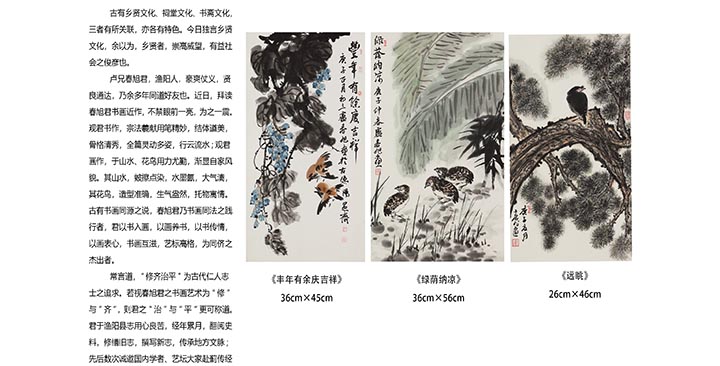 古有乡贤文化、祠堂文化、书斋文化，
三者有所关联，亦各有特色。今日独言乡贤
文化，余以为，乡贤者，崇高威望，有益社
会之俊彦也。
卢兄春旭君，渔阳人，豪爽仗义，贤
良通达，乃余多年同道好友也。近日，拜读
春旭君书画近作，不禁眼前一亮，为之一震。
观君书作，宗法羲献用笔精妙，结体遒美，
骨格清秀，全篇灵动多姿，行云流水；观君
画作，于山水、花鸟用力尤勤，渐显自家风
貌。其山水，皴擦点染，水墨氤，大气，
其花鸟，造型准确，生气盎然，托物寓情。
古有书画同源之说，春旭君乃书画同法之践
行者，君以书入画，以画养书，以书传情，
以画表心，书画互滋，艺标高格，为同侪之
杰出者。
常言道，“修齐治平”为古代仁人志
士之追求。若视春旭君之书画艺术为“修”
与“齐”，则君之“治”与“平”更可称道。
君于渔阳县志用心良苦，经年累月，翻阅史
料，修缮旧志，撰写新志，传承地方文脉；
先后数次诚邀国内学者、艺坛大家赴蓟传经
豐年有餘慶吉祥
《丰年有余庆吉祥》
36cm×45cm
《绿荫纳凉》
36cm×56cm
《远眺》
26cm×46cm